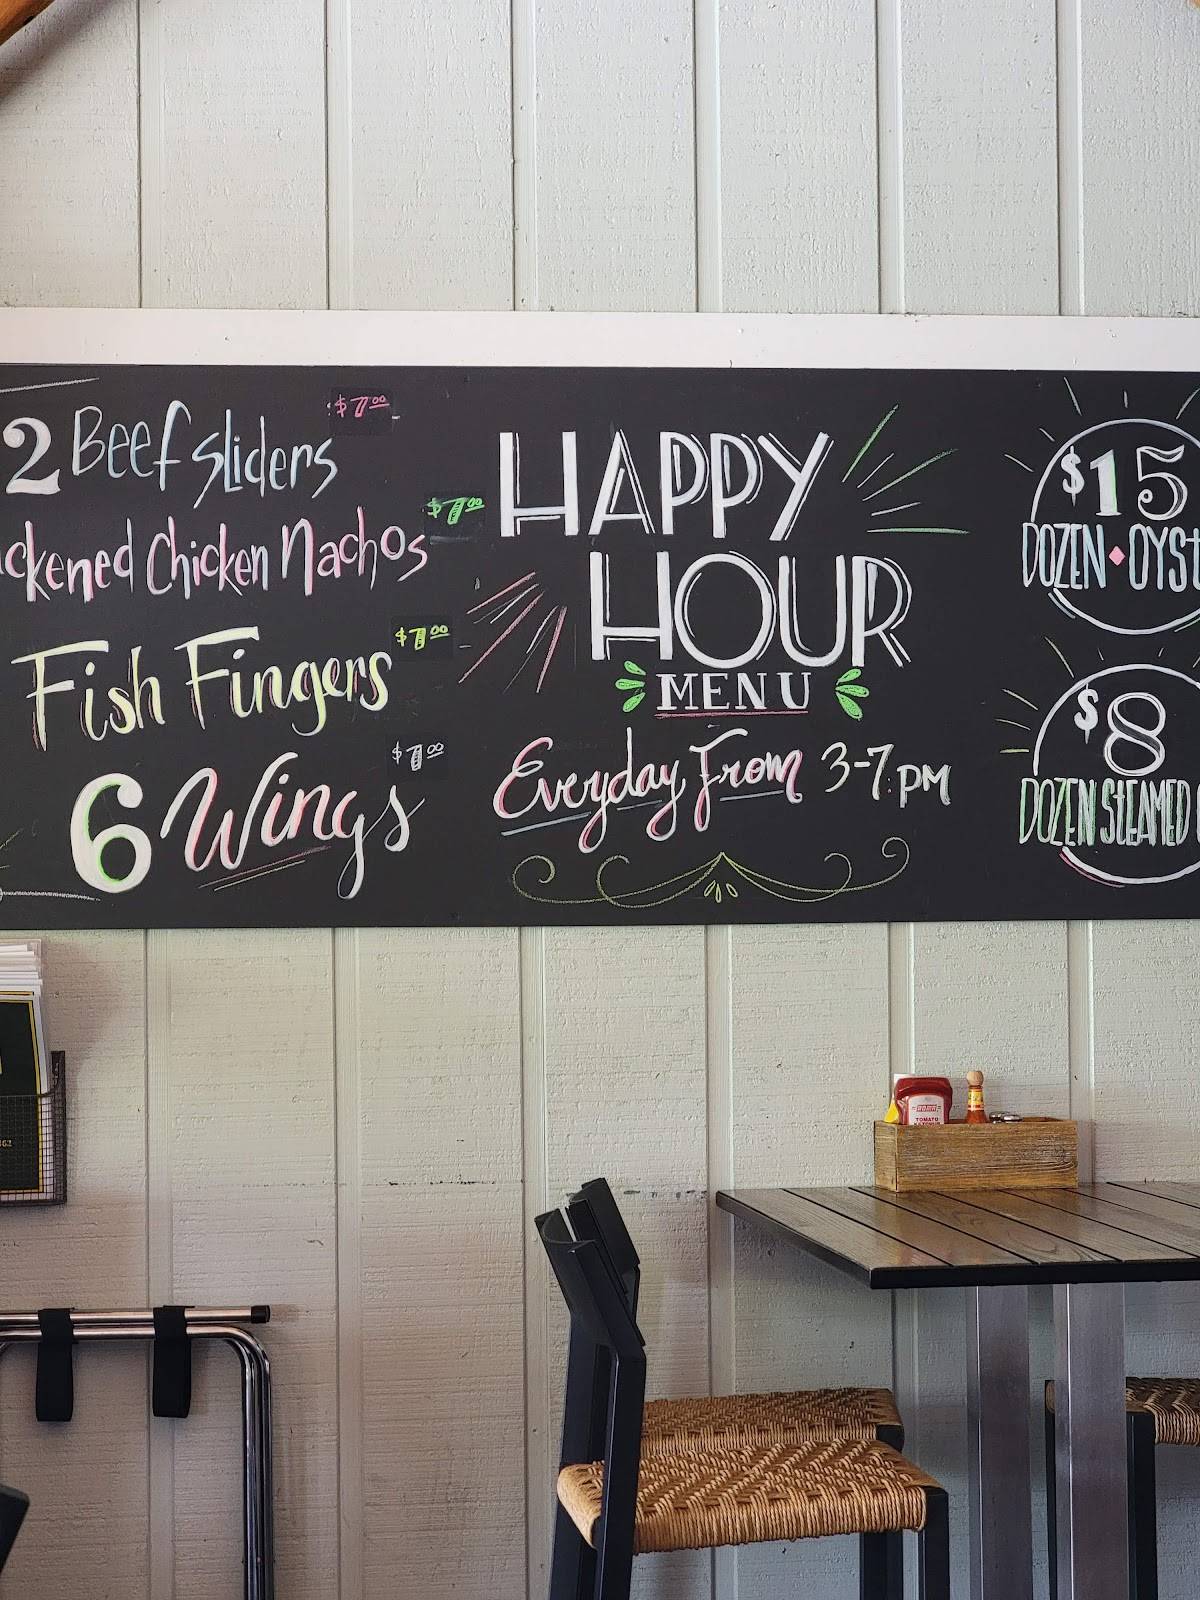 2 Beef Sliders $7.00
ckened Chicken Nachos $7.00
Fish Fingers $7.00
6 Wings $7.00
HAPPY
HOUR
MENU
Everyday From 3-7:PM
$15
DOZEN • OYST
$8
DOZEN STEAMED C
TOMATO